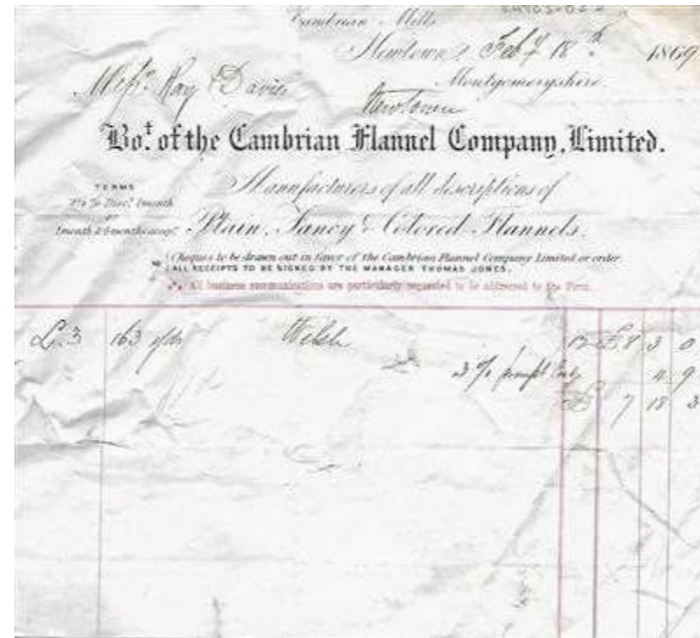 Cambrian Mills
Newtown, Feby 18th 1869
Montgomeryshire.
Messrs. Ray & Davies
Newtown
Bot. of the Cambrian Flannel Company, Limited.
Manufacturers of all descriptions of
Plain, Fancy & Colored Flannels.
TERMS
2½ % Disct. 1 month
Cheques to be drawn out in favor of the Cambrian Flannel Company Limited or order.
ALL RECEIPTS TO BE SIGNED BY THE MANAGER THOMAS JONES.
All business communications are particularly requested to be addressed to the Firm.
L.3 163 yds Welsh 12 £8 3 0
3 % prompt 4 9
£ 7 18 3